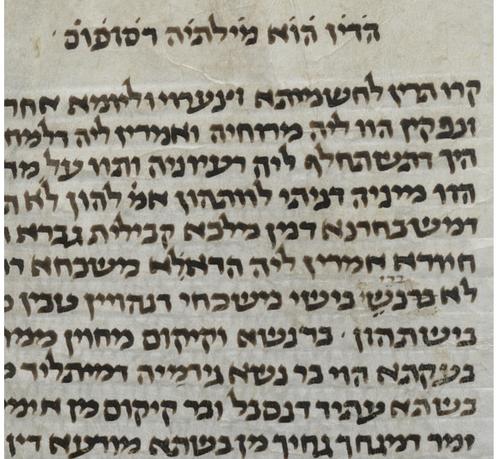 הדין הוא מילתיה דסופוס
קרו תרין לחשמיתא וליומא אחר
ונפקין הוו ליה מרוחיה ואמרין ליה
היך דתשתחלף ליה רעיוניה ותוו על
הוו מייניה דניתי לוותהון אמ׳ להון לא
דמן מילכא קבילית גברא
חוורא אמרין ליה משכחא
לא ברנש בישי מישכחי דנהויין טבין
בישתהון ברנשא וקיקום מחוין
בעקתא הוי בר נשא גירמיה דמיתליד
בשתא עתיד דנסבל ובר קיקום מן
ימר דמגחך גחיך מן בשתא מודעא דין